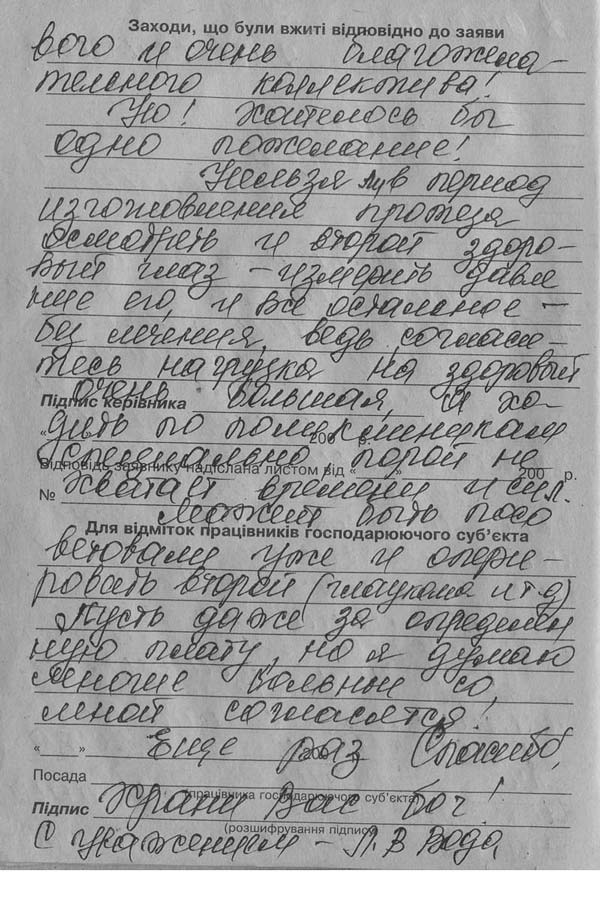 Заходи, що були вжиті відповідно до заяви
вого и очень благожела-
тельного коллектива!
Но! Хотелось бы
одно пожелание!
Нельзя ли в период
изготовления протеза
осмотреть и второй здоро-
вый глаз - измерить давле
ние его, и все остальное -
без лечения, ведь согласи-
тесь нагрузка на здоровый
очень большая, а хо-
Підпис керівника
дить по поликлиникам
"___" 200 р.
специально порой не
Відповідь заявнику надіслана листом від "___" 200 р.
№
хватает времени и сил.
Может быть посо
Для відміток працівників господарюючого суб'єкта
ветовали уже и опери-
ровать второй (глаукома и т.д)
Пусть даже за определен
ную плату, но я думаю
многие больные со
мной согласятся!
"___" 200
Еще раз Спасибо,
Посада
(працівника господарюючого суб'єкта)
Храни Вас бог!
Підпис
(розшифрування підпису)
С уважением - Л.В Вода